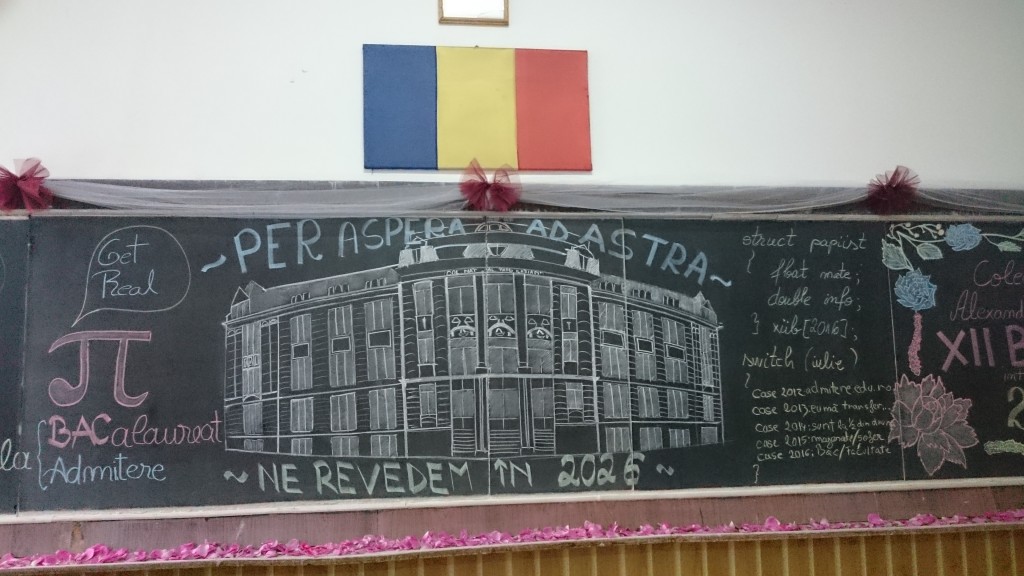 Get
Real
π
BACalaureat
Admitere
la
~PER ASPERA AD ASTRA~
~NE REVEDEM ÎN 2026~
struct papivst
{
float note;
double info;
} xiib[2016];
switch (iulie)
{
case 2012:admitere.edu.ro
case 2013:eu mă transfer...
case 2014:sunt
case 2015:
case 2016:Bac/facultate
}
Cole
Alexand
XII B
2